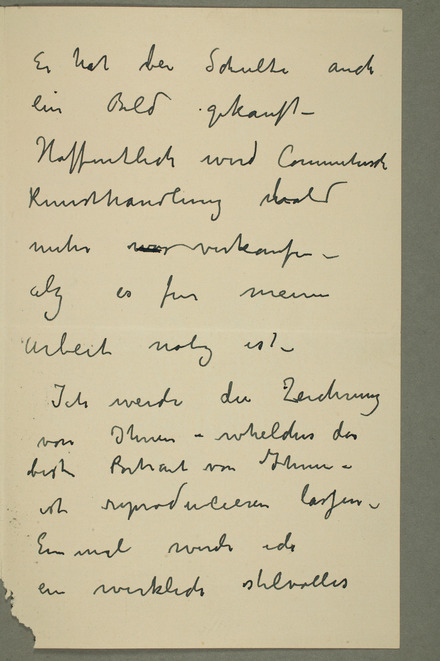 Er hat bei Schulte auch
ein Bild gekauft –
Hoffentlich wird Commeter'sche
Kunsthandlung bald
mehr verkaufen –
als es für meine
Arbeit nötig ist –
Ich werde die Zeichnung
von Ihnen – das
beste Portrait von Ihnen –
ist reproducieren lassen –
Einmal werde ich
ein wirklich stilvolles